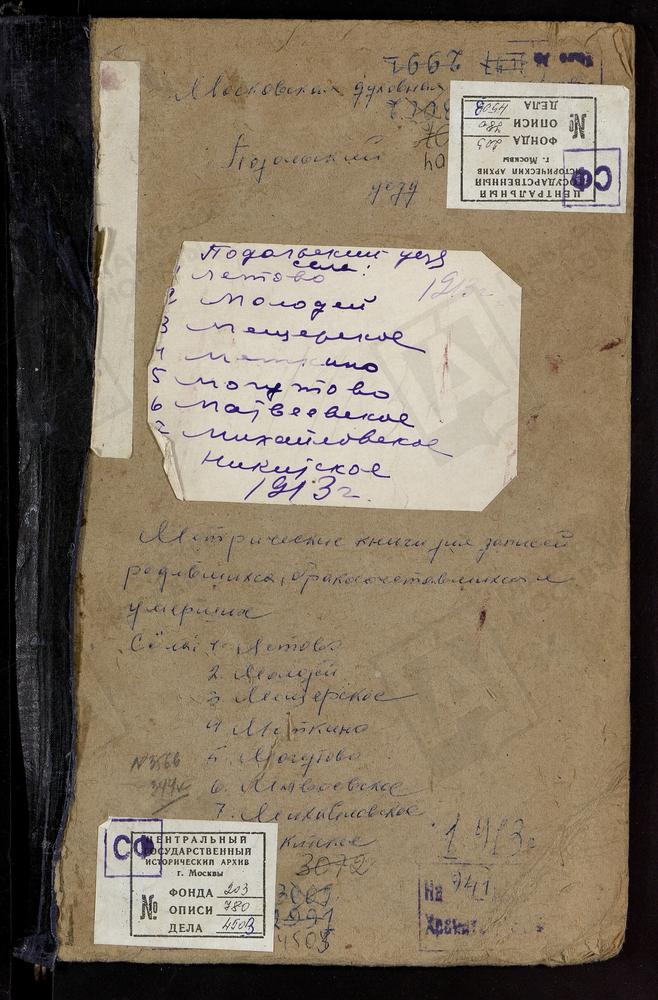 2991
Московских духовных
Подольский
уезд
40
ЦЕНТРАЛЬНЫЙ
ГОСУДАРСТВЕННЫЙ
ИСТОРИЧЕСКИЙ АРХИВ
г. Москвы
№
ФОНДА 203
ОПИСИ 780
ДЕЛА 4508
СФ
Подольский уезд
села:
1 Летово
1913г.
2 Молодей
3 Мещерское
4 Меткино
5 Могутово
6 Матвеевское
7 Михайловское
Никитское
1913г.
Метрические книги для записей
родившихся, бракосочетавшихся и
умерших
Сёла: 1. Летово
2. Молодей
3. Мещерское
4. Меткино
5. Могутово
6. Матвеевское
7. Михайловское
№3566
1913г
3072
СФ
ЦЕНТРАЛЬНЫЙ
ГОСУДАРСТВЕННЫЙ
ИСТОРИЧЕСКИЙ АРХИВ
г. Москвы
№
ФОНДА 203
ОПИСИ 780
ДЕЛА 4508
2991
4508
На 941